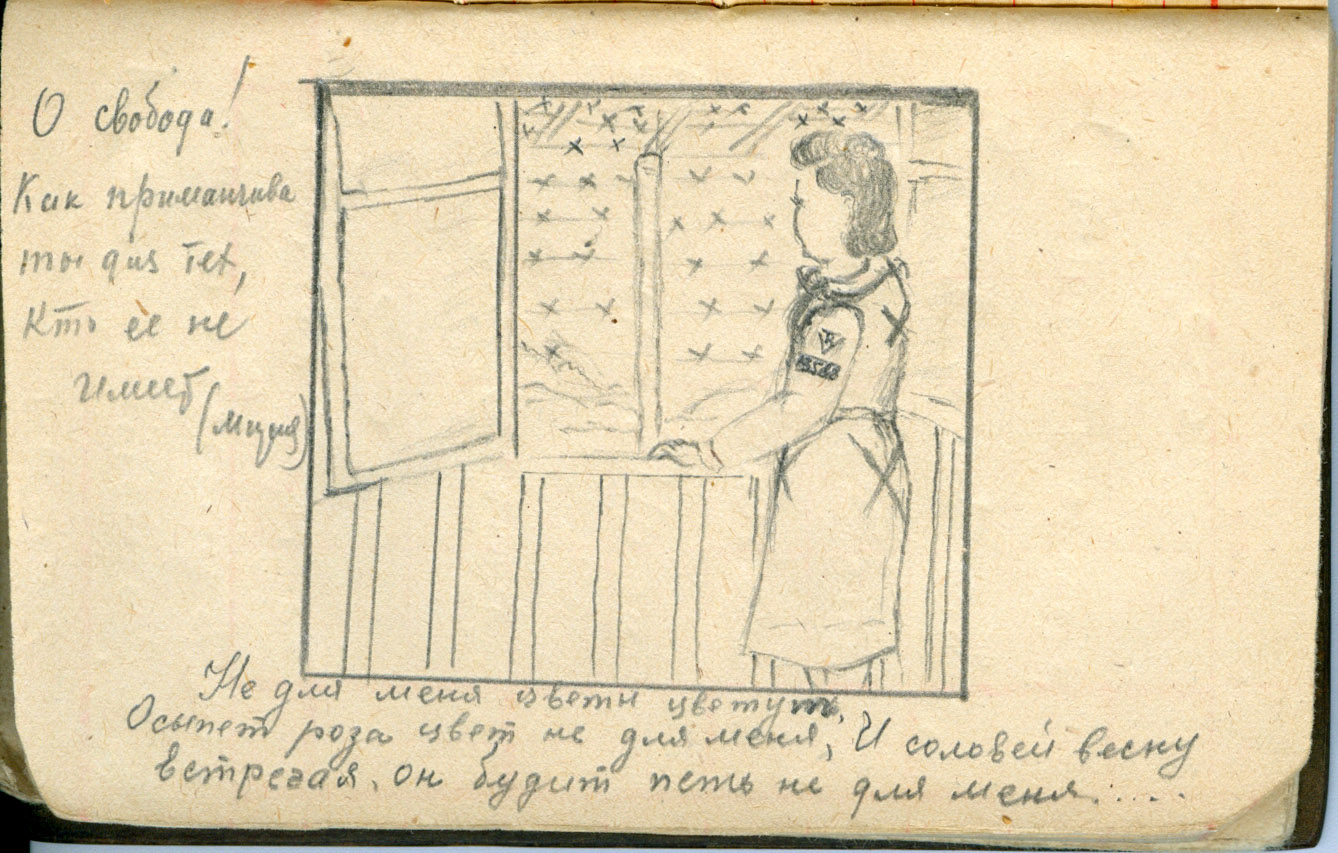 О свобода!
Как приманчива
ты для тех,
Кто ее не
имеет
Не для меня цветы цветут,
Осыпет роза цвет не для меня, И соловей весну
встречая, он будит петь не для меня.....